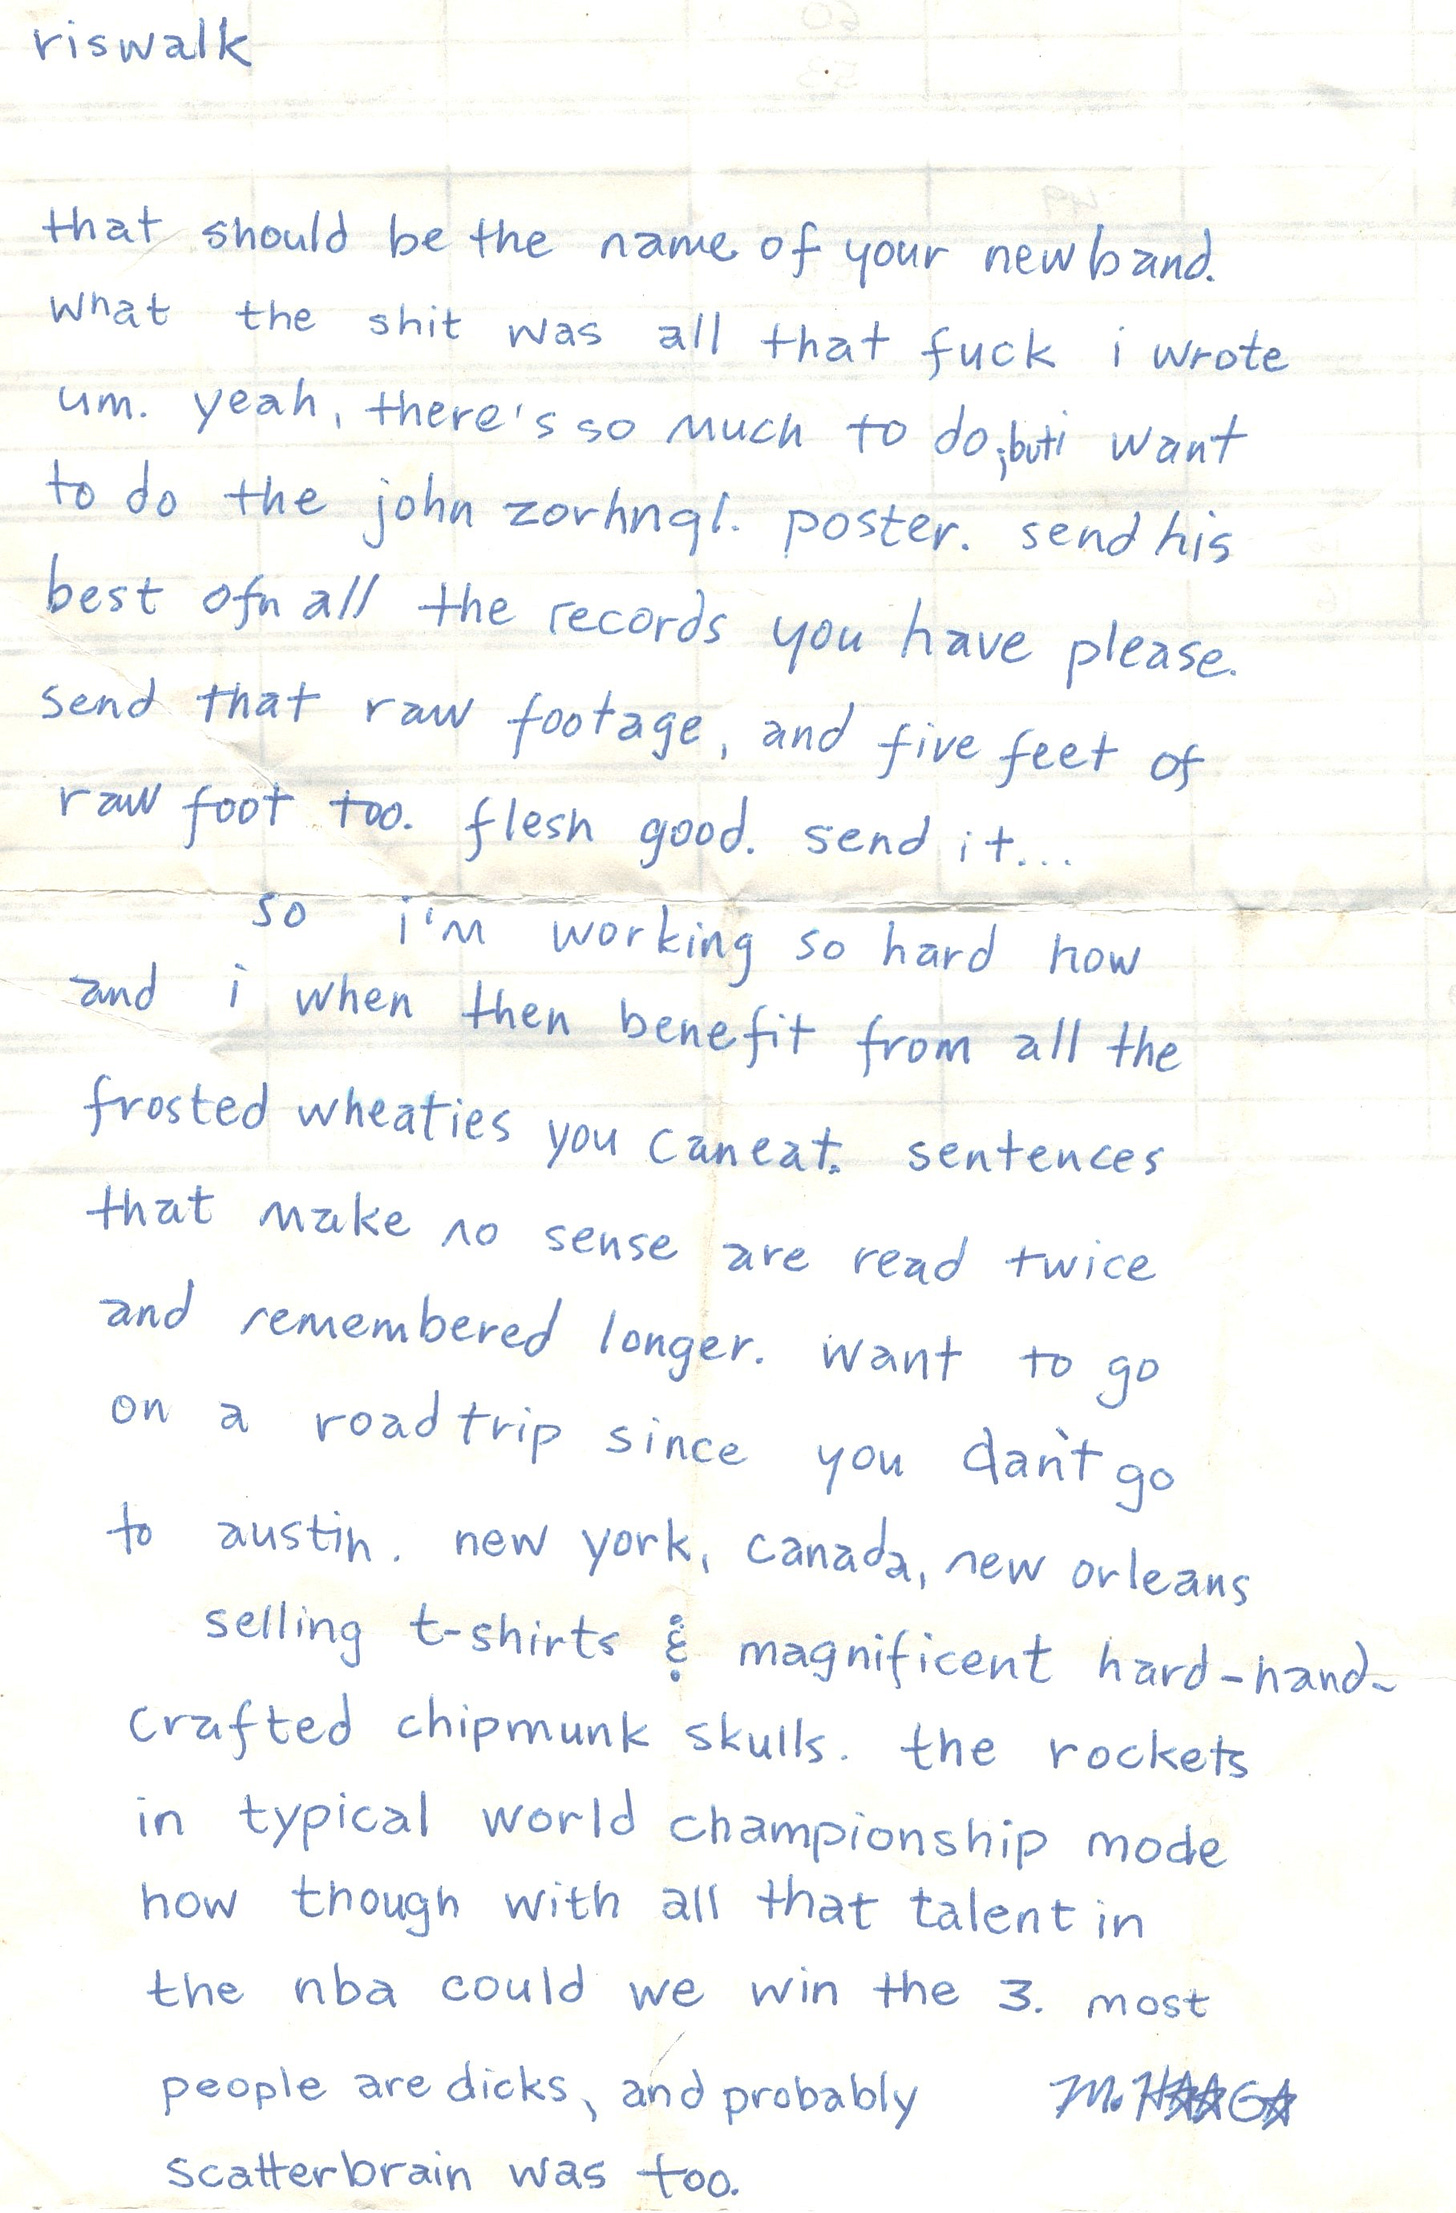 riswalk
that should be the name of your new band.
what the shit was all that fuck i wrote
um. yeah, there's so much to do, but i want
to do the john zorhnql. poster. send his
best ofn all the records you have please.
send that raw footage, and five feet of
raw foot too. flesh good. send it...
so i'm working so hard now
and i when then benefit from all the
frosted wheaties you can eat. sentences
that make no sense are read twice
and remembered longer. want to go
on a road trip since you dan't go
to austin. new york, canada, new orleans
selling t-shirts & magnificent hard-hand-
crafted chipmunk skulls. the rockets
in typical world championship mode
now though with all that talent in
the nba could we win the 3. most
people are dicks, and probably
scatterbrain was too.
M. HAAGA